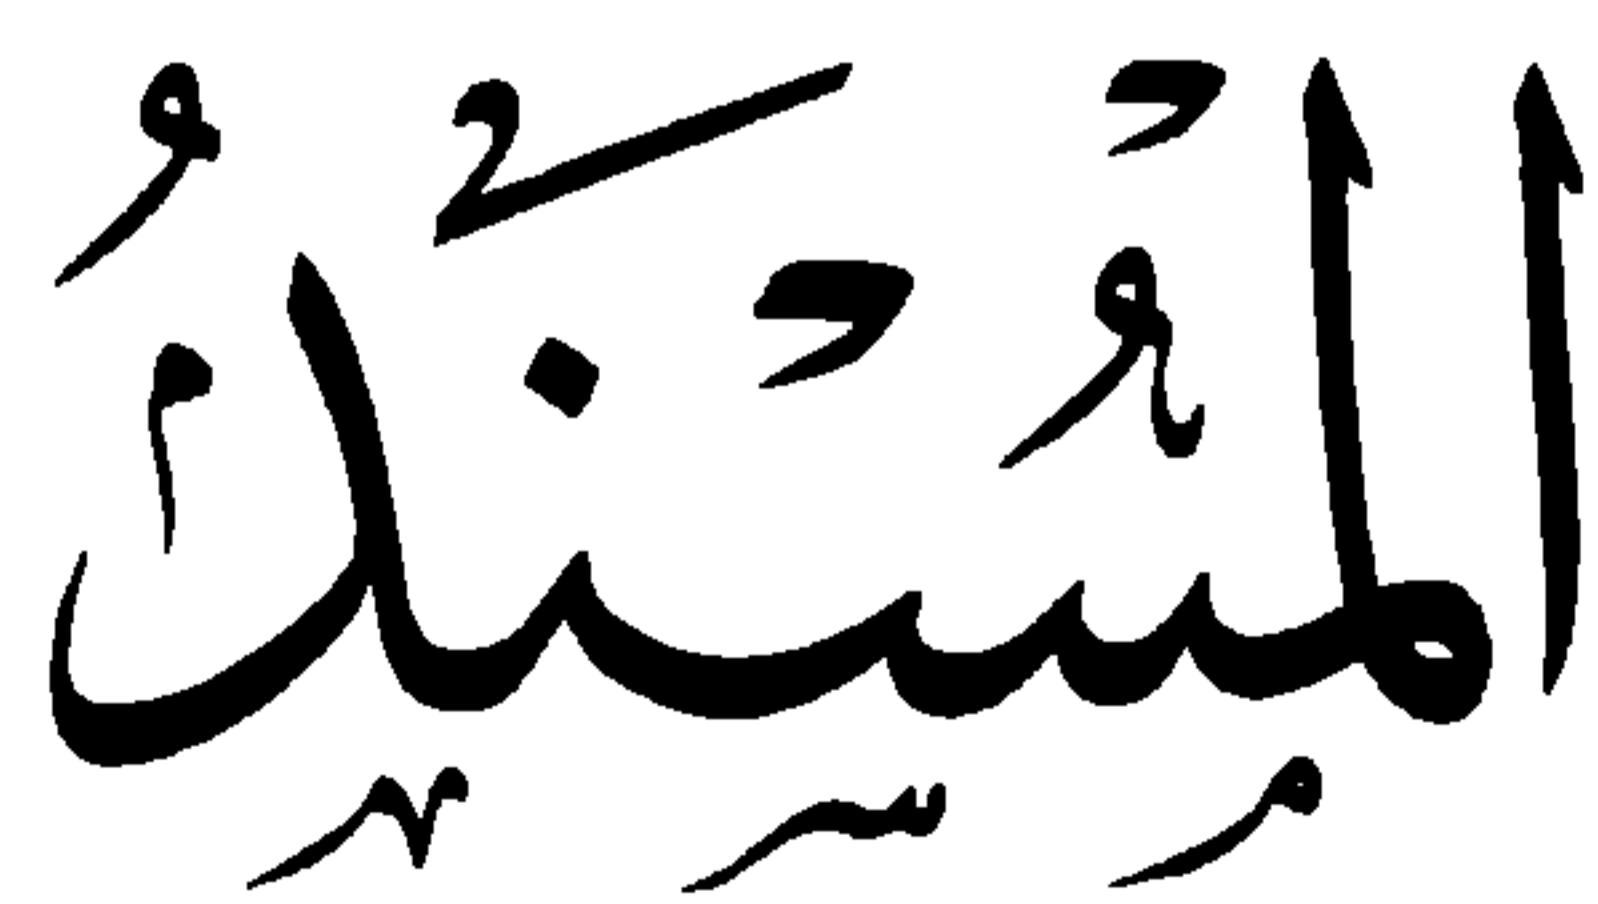 الْمُسْنَدُ